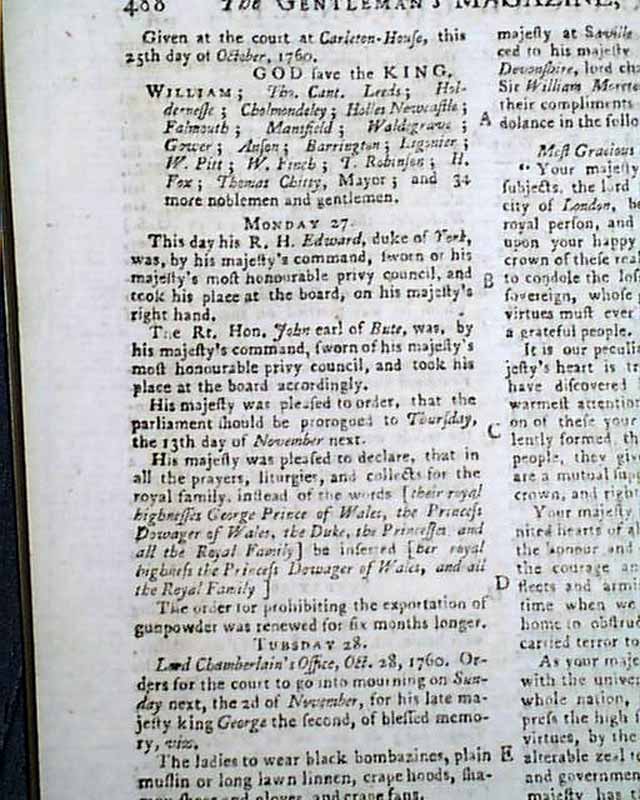 488 The GENTLEMAN'S MAGAZINE,
Given at the court at Carleton-House, this
25th day of October, 1760.
GOD ſave the KING.
WILLIAM; Tho. Cant. Leeds; Hol-
derneſſe; Cholmondeley; Holles Newcaſtle;
Falmouth; Mansfield; Waldegrave;
Gower; Anſon; Barrington; Ligonier;
W. Pitt; W. Finch; T. Robinſon; H.
Fox; Thomas Chitty, Mayor; and 34
more noblemen and gentlemen.
MONDAY 27.
This day his R. H. Edward, duke of York,
was, by his majeſty's command, ſworn of his
majeſty's moſt honourable privy council, and
took his place at the board, on his majeſty's
right hand.
The Rt. Hon. John earl of Bute, was, by
his majeſty's command, ſworn of his majeſty's
moſt honourable privy council, and took his
place at the board accordingly.
His majeſty was pleaſed to order, that the
parliament ſhould be prorogued to Thurſday,
the 13th day of November next.
His majeſty was pleaſed to declare, that in
all the prayers, liturgies, and collects for the
royal family, inſtead of the words [their royal
highneſſes George Prince of Wales, the Princeſs
Dowager of Wales, the Duke, the Princeſſes, and
all the Royal Family] be inſerted [her royal
highneſs the Princeſs Dowager of Wales, and all
the Royal Family]
The order for prohibiting the exportation of
gunpowder was renewed for ſix months longer.
TUESDAY 28.
Lord Chamberlain's Office, Oct. 28, 1760. Or-
ders for the court to go into mourning on Sun-
day next, the 2d of November, for his late ma-
jeſty king George the ſecond, of bleſſed memo-
ry, viz.
The ladies to wear black bombazines, plain
muſlin or long lawn linnen, crape hoods, ſha-
moy ſhoes and gloves, and crape fans.
A
B
C
D
E
majeſty at Saville
ced to his majeſty
Devonſhire, lord
Sir William
their compliments
dolance in the
Moſt Gracious
"Your majeſty
ſubjects, the lord
city of London,
royal perſon, and
upon your happy
crown of theſe
to condole the
ſovereign, whoſe
virtues muſt ever
a grateful people.
It is our
jeſty's heart is
have diſcovered
warmeſt
on of theſe your
lently formed,
people, they
are a mutual
crown, and
Your majeſty
nited hearts of
the honour and
the courage
fleets and
time when we
home in
carried terror to
As your
with the
whole nation,
preſs the high
virtues, by the
alterable zeal to
and government
majeſty has